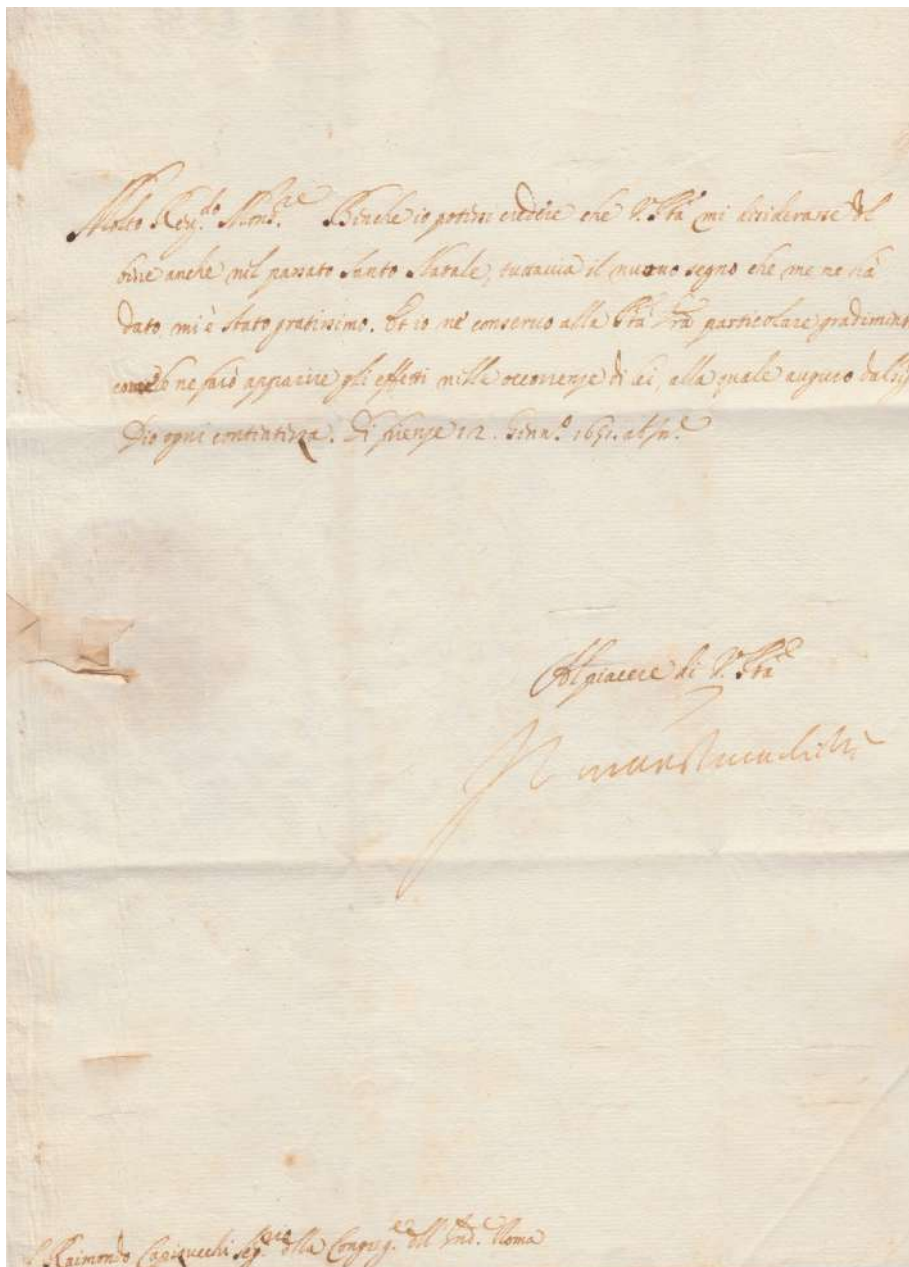 Molto Rev.do Mons.re Benche io potessi credere che V. Ptà mi desiderasse del
bene anche nel passato Santo Natale, tuttavia il nuovo segno che me ne hà
dato, mi è stato gratissimo. Et io nè conservo alla Ptà Vra particolare gradiment
ne farò apparire gli effetti nelle occorrenze di lei, alla quale auguro
Dio ogni contentezza. Di Firenze 12. Genn.o 1651. ab Inc.e
Al piacere di V. Ptà
P. Raimondo Capizucchi Seg.rio della Congreg.ne dell' Ind.e Roma